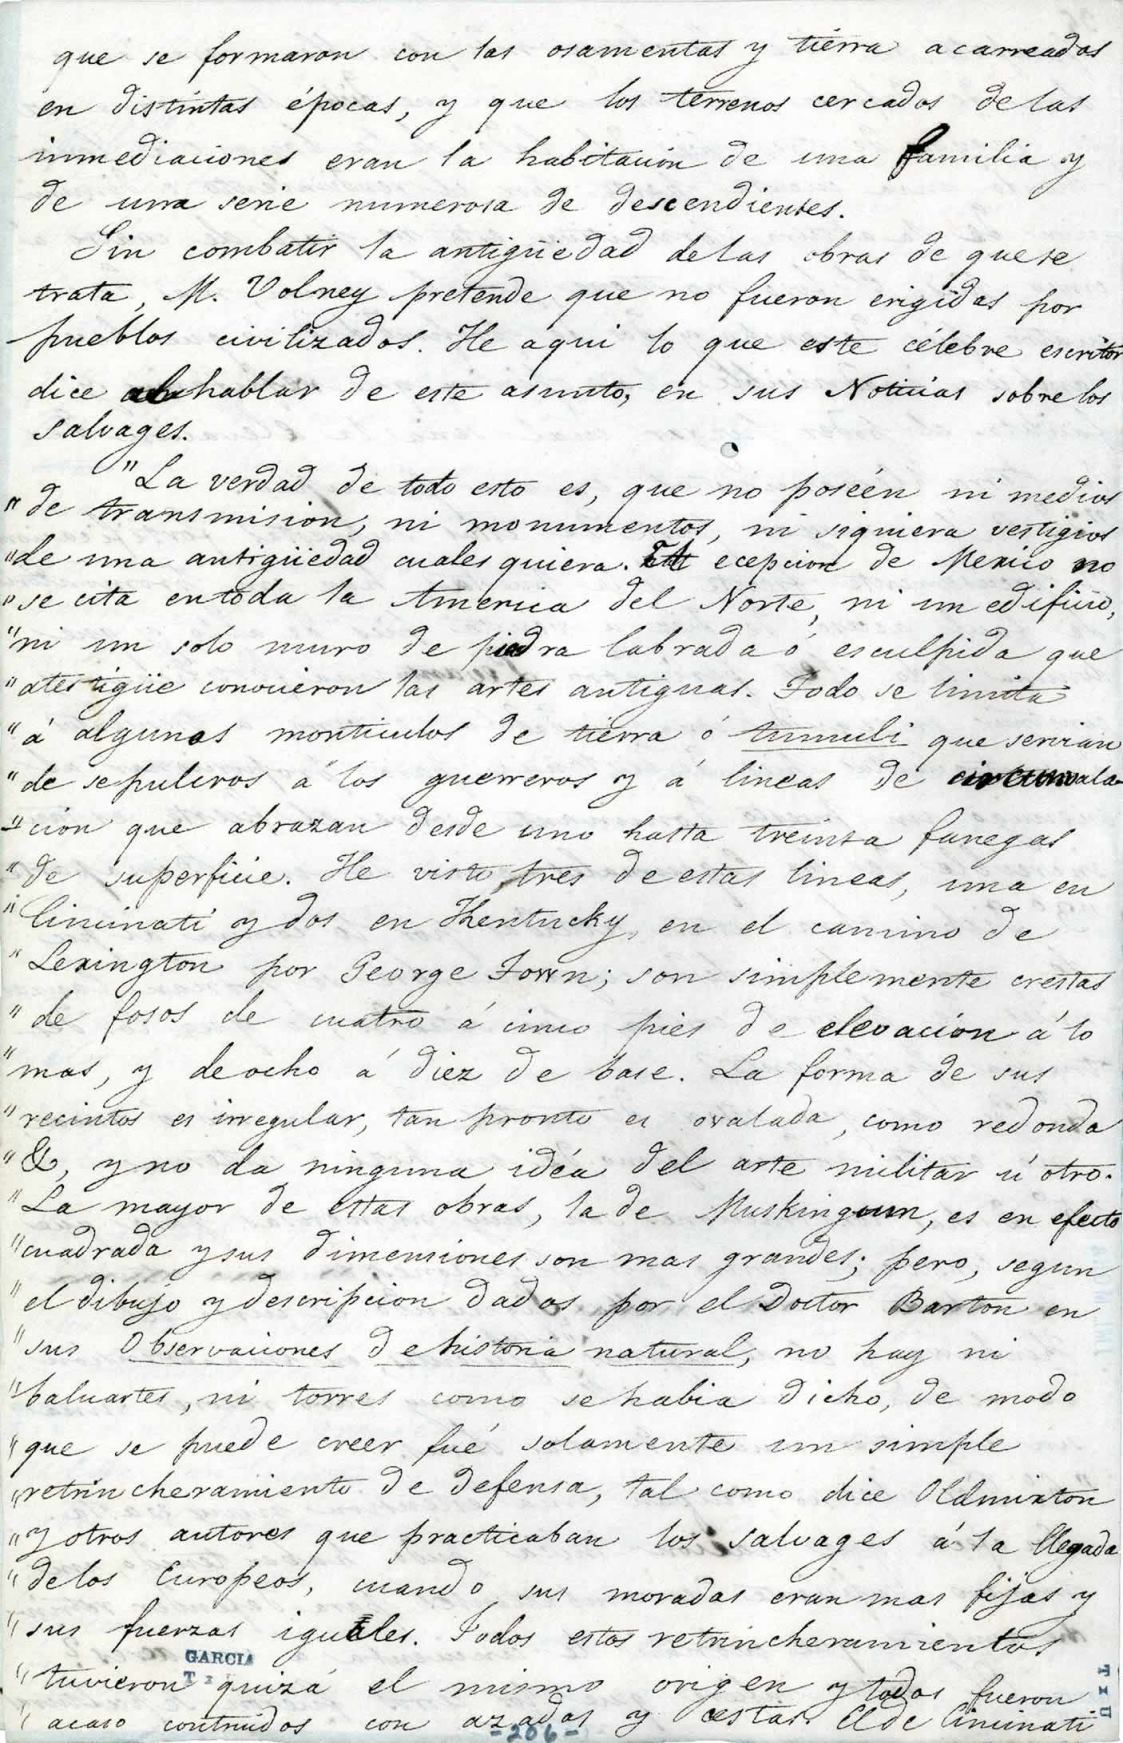 que se formaron con las osamentas y tierra acarreadas
en distintas épocas, y que los terrenos cercados de las
inmediaciones eran la habitación de una familia y
de una serie numerosa de descendientes.
Sin combatir la antigüedad de las obras de que se
trata, M. Volney pretende que no fueron erigidas por
pueblos civilizados. He aqui lo que este célebre escritor
dice al hablar de este asunto, en sus Noticias sobre los
salvages.
"La verdad de todo esto es, que no poséen ni medios
" de transmision, ni monumentos, ni siquiera vestigios
" de una antigüedad cuales quiera. ecepcion de Mexico no
" se cita en toda la America del Norte, ni un edificio,
" ni un solo muro de piedra labrada ó esculpida que
" atestigüe conocieron las artes antiguas. Todo se limita
" á algunos monticulos de tierra ó tumuli que servian
" de sepulcros á los guerreros y á lineas de circunvala-
" cion que abrazan desde uno hasta treinta fanegas
" de superficie. He visto tres de estas lineas, una en
" Cincinati y dos en Kentucky, en el camino de
" Lexington por George Town; son simplemente crestas
" de fosos de cuatro á cinco pies de elevación á lo
" mas, y de ocho á diez de base. La forma de sus
" recintos es irregular, tan pronto es ovalada, como redonda
" &, y no da ninguna idéa del arte militar ú otro.
" La mayor de estas obras, la de Muskingum, es en efecto
" cuadrada y sus dimensiones son mas grandes; pero, segun
" el dibujo y descripcion dados por el Doctor Barton en
" sus Observaciones de historia natural, no hay ni
" baluartes, ni torres como se habia dicho, de modo
" que se puede creer fué solamente un simple
" retrincheramiento de defensa, tal como dice Oldmixton
" y otros autores que practicaban los salvages á la llegada
" de los Europeos, cuando sus moradas eran mas fijas y
" sus fuerzas iguales. Todos estos retrincheramientos
GARCIA
" tuvieron quizá el mismo origen y todos fueron
" acaso contruidos con azadas y cestas. El de Cincinati
-206-